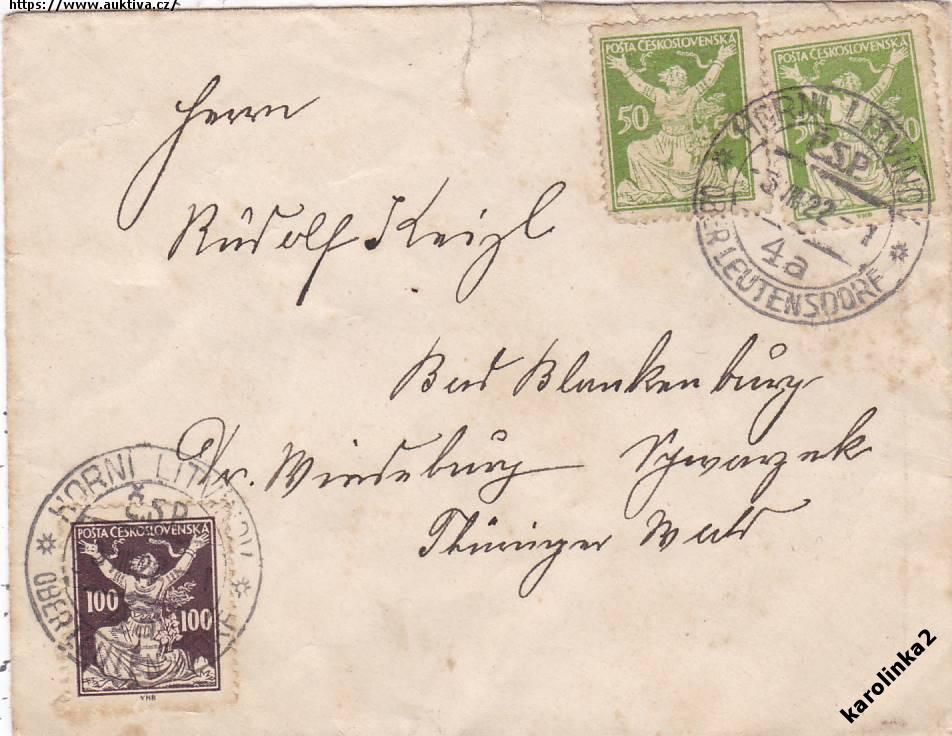 https://www.auktiva.cz/
POŠTA ČESKOSLOVENSKÁ
50 50
POŠTA ČESKOSLOVENSKÁ
50 50
VHB
HORNI LITVINOV
ČSP
-3 22-
4a
OBER LEUTENSDORF
Herrn
Rudolf Keizl
Bad Blankenburg
Wiedeburg Schwarzek
Thüringer Wald
HORNI LITVINOV
ČSP
POŠTA ČESKOSLOVENSKÁ
100 100
VHB
OBER LEUTENSDORF
karolinka2